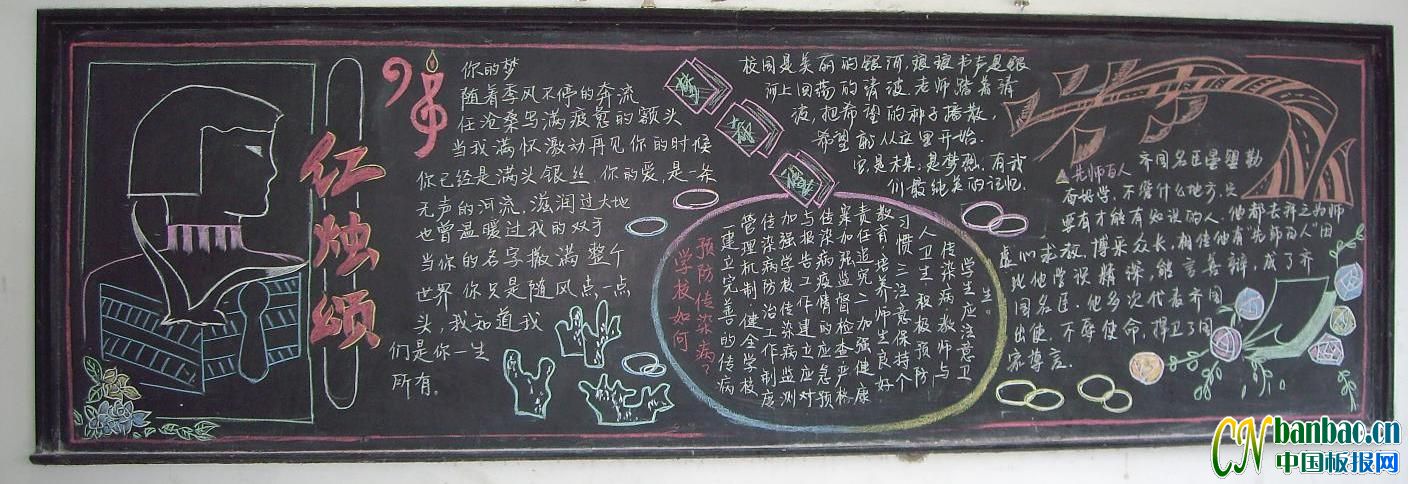 红烛颂
你的梦
随着季风不停的奔流
任沧桑写满疲惫的额头
当我满怀激动再见你的时候
你已经是满头银丝，你的爱，是一条
无声的河流，滋润过大地
也曾温暖过我的双手
当你的名字撒满整个
世界 你只是随风点一点
头，我知道我
们是你一生
所有。
校园是美丽的银河，琅琅书声是银
河上回荡的清波老师踏着清
波，把希望的种子播散，
希望就从这里开始。
它是未来，是梦想，有我
们最纯美的记忆。
学校如何
预防传染病？
一建立完善的传病
管理机制 健全学校
传染病防治工作制度
加强学校传染病监测
与报告工作建立应对
传染病疫情的应急预
案加强监督检查严格
责任追究二加强健康
教育培养师生良好
习惯三注意保持个
人卫生积极预防
传染病教师与
学生应注意卫
生。
先师百人 齐国名臣晏婴勤
奋好学，不管什么地方，只
要有才能有知识的人，他都去拜之为师
虚心求教，博采众长，相传他有“先师百人”因
此他学识精深，能言善辩，成了齐
国名臣，他多次代表齐国
出使，不辱使命，捍卫了国
家尊言。
CN banbao.cn
中国板报网